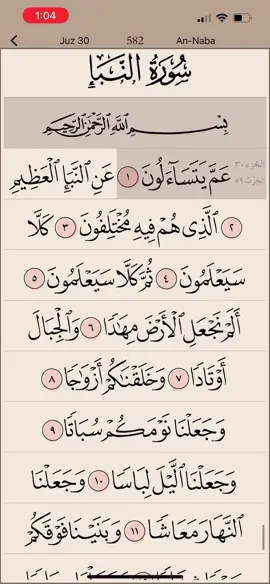 1:04
Juz 30 582 An-Naba
سُورَةُ النَّبَإِ
بِسْمِ اللَّهِ الرَّحْمَٰنِ الرَّحِيمِ
الجزء ٣٠
الحزب ٥٩
عَمَّ يَتَسَآءَلُونَ ١ عَنِ ٱلنَّبَإِ ٱلْعَظِيمِ
٢ ٱلَّذِى هُمْ فِيهِ مُخْتَلِفُونَ ٣ كَلَّا
سَيَعْلَمُونَ ٤ ثُمَّ كَلَّا سَيَعْلَمُونَ ٥
أَلَمْ نَجْعَلِ ٱلْأَرْضَ مِهَٰدًا ٦ وَٱلْجِبَالَ
أَوْتَادًا ٧ وَخَلَقْنَٰكُمْ أَزْوَٰجًا ٨
وَجَعَلْنَا نَوْمَكُمْ سُبَاتًا ٩
وَجَعَلْنَا ٱلَّيْلَ لِبَاسًا ١٠ وَجَعَلْنَا
ٱلنَّهَارَ مَعَاشًا ١١ وَبَنَيْنَا فَوْقَكُمْ